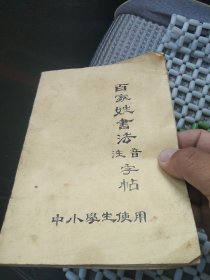 百家姓書法
注音字帖
中小學生使用